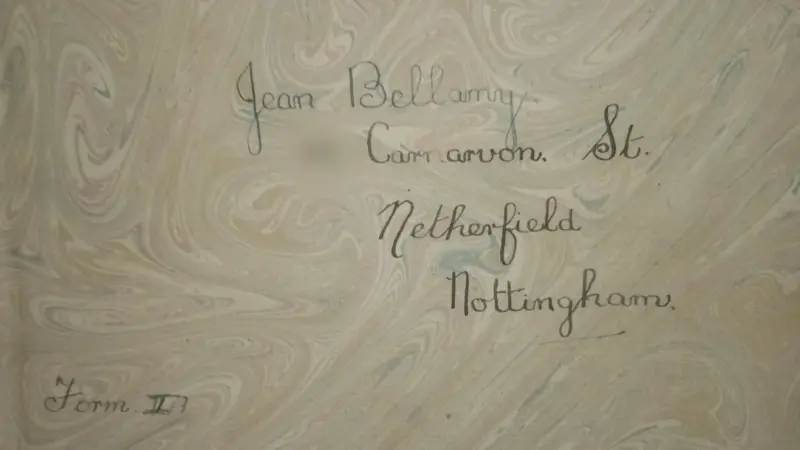 Jean Bellamy
Carnarvon. St.
Netherfield
Nottingham.
Form II